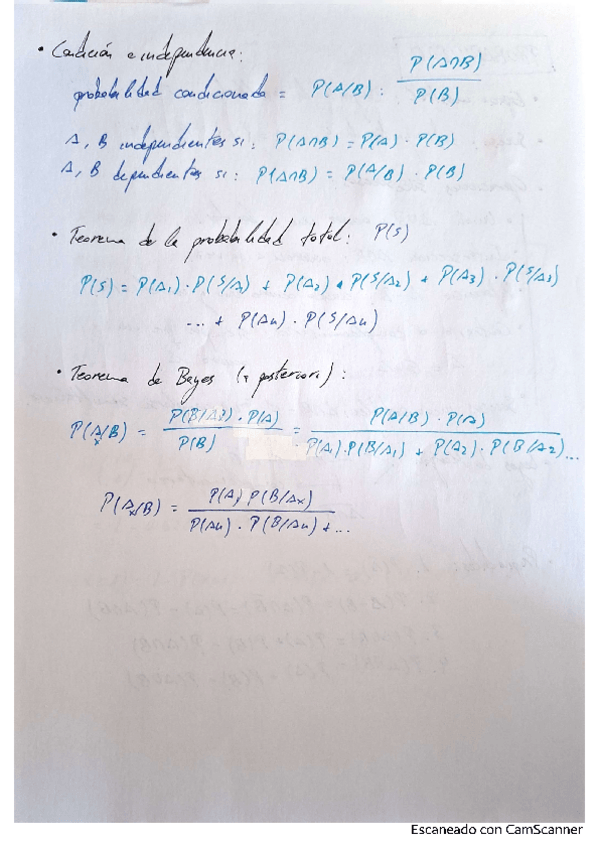 • Condición e independencia:
probabilidad condicionada = P(A/B) : P(A∩B) / P(B)
A, B independientes si: P(A∩B) = P(A) · P(B)
A, B dependientes si: P(A∩B) = P(A/B) · P(B)
• Teorema de la probabilidad total: P(S)
P(S) = P(A₁) · P(S/A₁) + P(A₂) · P(S/A₂) + P(A₃) · P(S/A₃)
... + P(Au) · P(S/Au)
• Teorema de Bayes (a posteriori):
P(Aₓ/B) = P(B/A) · P(A) / P(B) = P(A/B) · P(A) / P(A₁) · P(B/A₁) + P(A₂) · P(B/A₂)...
P(Aₓ/B) = P(A) P(B/Aₓ) / P(Au) · P(B/Au) + ...
Escaneado con CamScanner